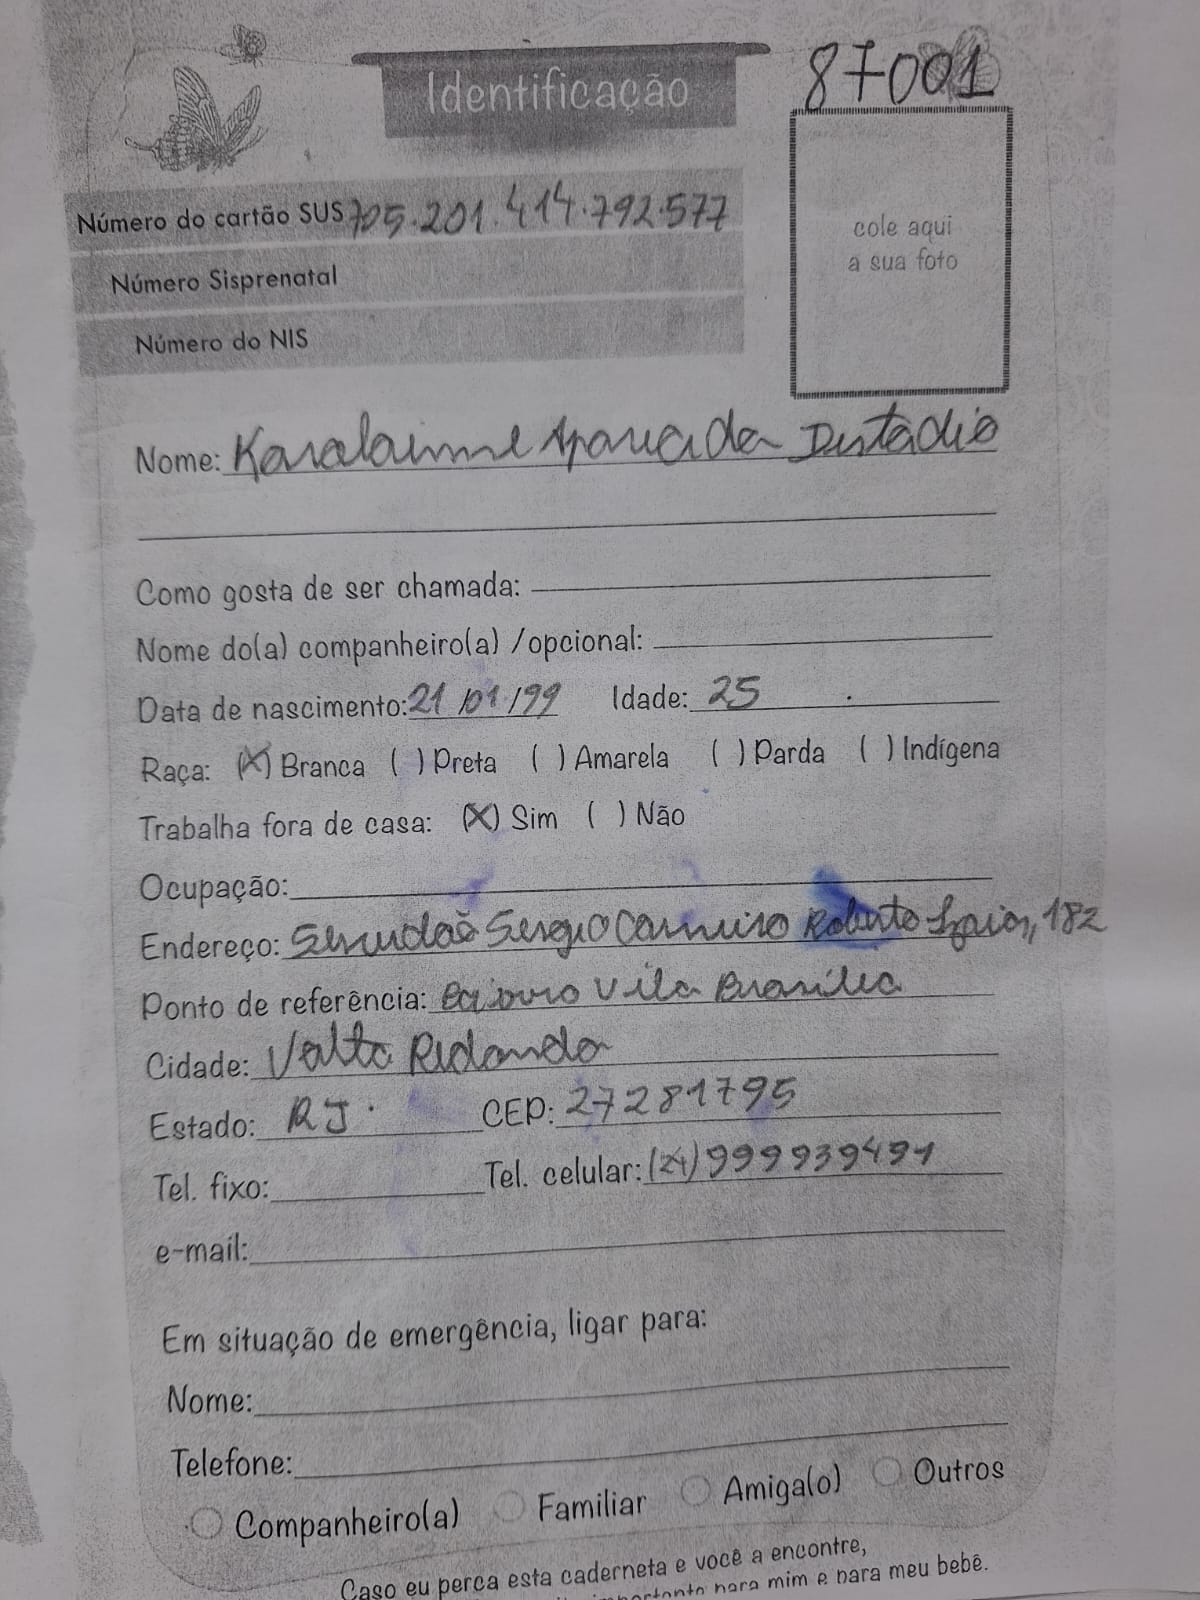 Identificação
87001
Número do cartão SUS 705.201.414.792.577
Número Sisprenatal
Número do NIS
cole aqui
a sua foto
Nome: Karalaine Aparecida
Como gosta de ser chamada:
Nome do(a) companheiro(a) /opcional:
Data de nascimento: 21/01/99 Idade: 25
Raça: (X) Branca ( ) Preta ( ) Amarela ( ) Parda ( ) Indígena
Trabalha fora de casa: (X) Sim ( ) Não
Ocupação:
Endereço: Servidão Sergio Carneiro Roberto, 182
Ponto de referência: Bairro Vila Brasília
Cidade: Volta Redonda
Estado: RJ. CEP: 27281795
Tel. fixo: Tel. celular: (24) 999939491
e-mail:
Em situação de emergência, ligar para:
Nome:
Telefone:
Companheiro(a) Familiar Amiga(o) Outros
Caso eu perca esta caderneta e você a encontre,
para mim e para meu bebê.